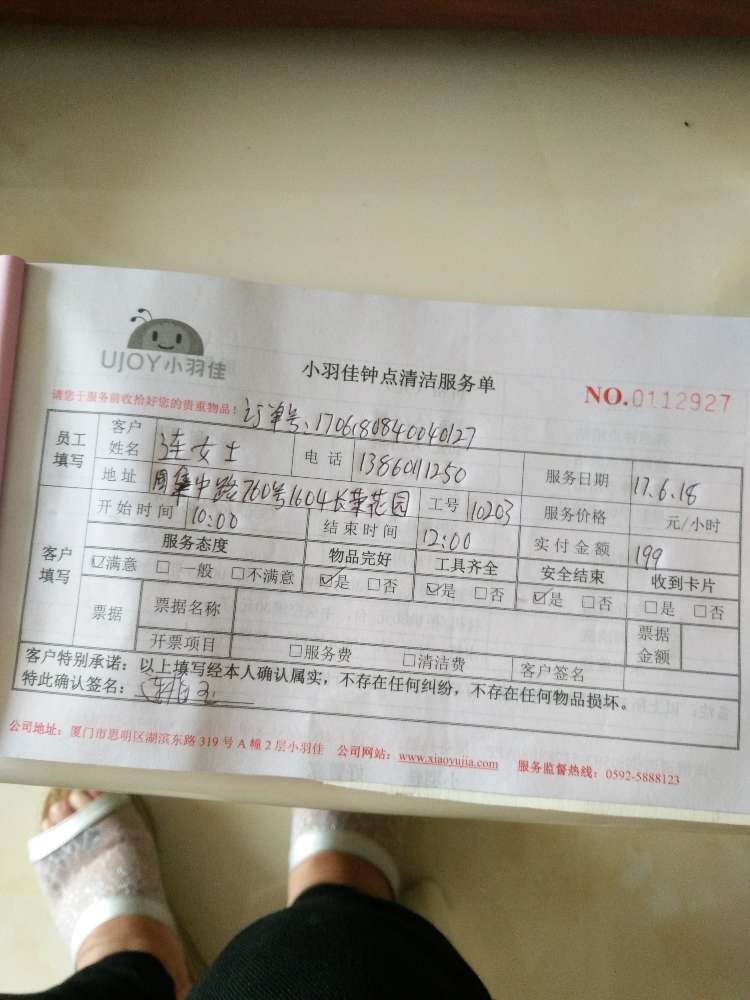 UJOY小羽佳
小羽佳钟点清洁服务单
NO.0112927
请您于服务前收拾好您的贵重物品! 订单号:1706180840040127
员工填写 客户姓名 连女士 电话 13860111250 服务日期 17.6.18
地址 中路760号1604长荣花园 工号 10203 服务价格 元/小时
客户填写 开始时间 10:00 结束时间 12:00 实付金额 199
服务态度 物品完好 工具齐全 安全结束 收到卡片
☑满意 □一般 □不满意 ☑是 □否 ☑是 □否 ☑是 □否 □是 □否
票据 票据名称 票据金额
开票项目 □服务费 □清洁费 客户签名
客户特别承诺:以上填写经本人确认属实,不存在任何纠纷,不存在任何物品损坏。
特此确认签名:
公司地址:厦门市思明区湖滨东路 319 号 A 幢 2 层小羽佳 公司网站:www.xiaoyujia.com 服务监督热线:0592-5888123